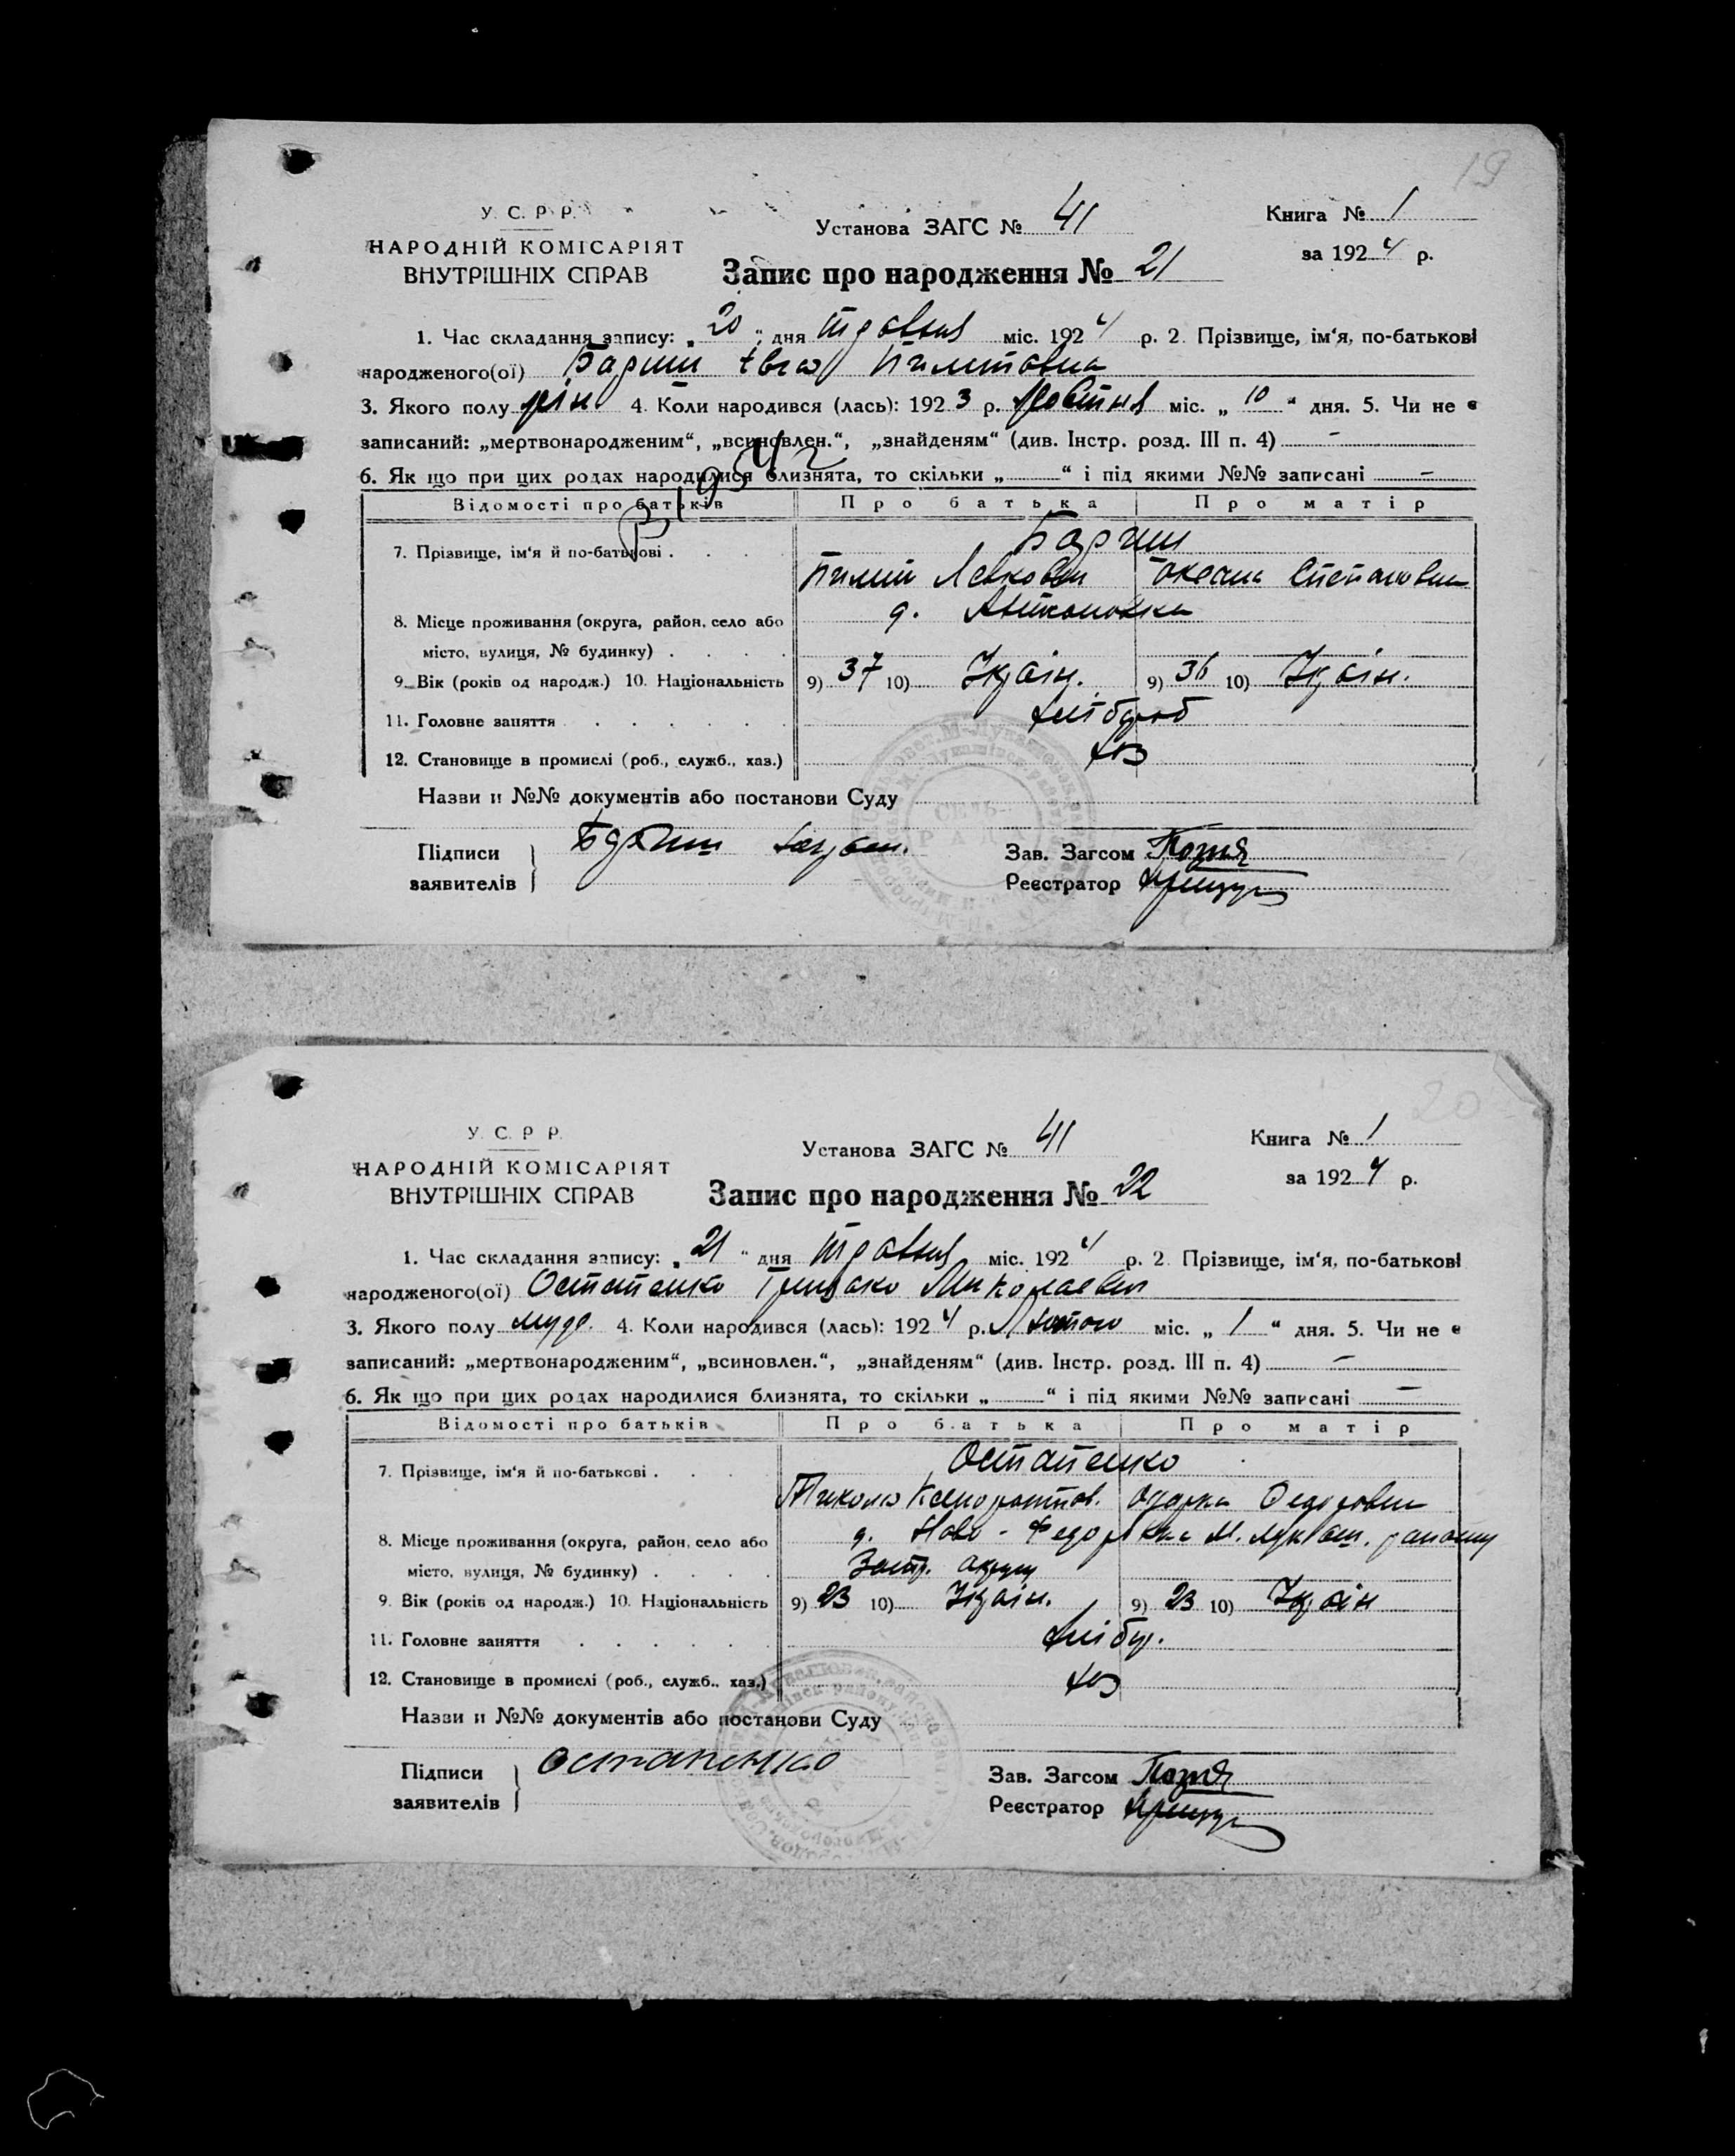 19
У. С. Р. Р.
НАРОДНІЙ КОМІСАРІЯТ
ВНУТРІШНІХ СПРАВ
Установа ЗАГС № 41
Книга № 1
за 1924 р.
Запис про народження № 21
1. Час складання запису: „20" дня травня міс. 1924 р. 2. Прізвище, ім'я, по-батькові
народженого(ої)
3. Якого полу жін. 4. Коли народився (лась): 1923 р. Жовтня міс. „10" дня. 5. Чи не є
записаний: „мертвонародженим", „всиновлен.", „знайденям" (див. Інстр. розд. III п. 4) -
6. Як що при цих родах народилися близнята, то скільки „ " і під якими №№ записані -
Відомості про батьків Про батька Про матір
7. Прізвище, ім'я й по-батькові
Оксана Степановна
8. Місце проживання (округа, район, село або
місто, вулиця, № будинку)
9. Вік (років од народж.) 10. Національність 9) 37 10) Україн. 9) 36 10) Україн.
11. Головне заняття хлібороб
12. Становище в промислі (роб., служб., хаз.) хоз
Назви и №№ документів або постанови Суду
Підписи
заявителів
Зав. Загсом
Реєстратор
20
У. С. Р. Р.
НАРОДНІЙ КОМІСАРІЯТ
ВНУТРІШНІХ СПРАВ
Установа ЗАГС № 41
Книга № 1
за 1924 р.
Запис про народження № 22
1. Час складання запису: „21" дня травня міс. 1924 р. 2. Прізвище, ім'я, по-батькові
народженого(ої) Остапенко Миколаевич
3. Якого полу муж. 4. Коли народився (лась): 1924 р. Лютого міс. „1" дня. 5. Чи не є
записаний: „мертвонародженим", „всиновлен.", „знайденям" (див. Інстр. розд. III п. 4) -
6. Як що при цих родах народилися близнята, то скільки „ " і під якими №№ записані -
Відомості про батьків Про батька Про матір
7. Прізвище, ім'я й по-батькові Остапенко
Микола Одарка Федоровна
8. Місце проживання (округа, район, село або д. Ново-Федоровка М. Лукаш. району
місто, вулиця, № будинку) Запор. округи
9. Вік (років од народж.) 10. Національність 9) 23 10) Україн. 9) 23 10) Україн
11. Головне заняття хлібор.
12. Становище в промислі (роб., служб., хаз.) хоз
Назви и №№ документів або постанови Суду
Підписи
заявителів
Остапенко
Зав. Загсом
Реєстратор